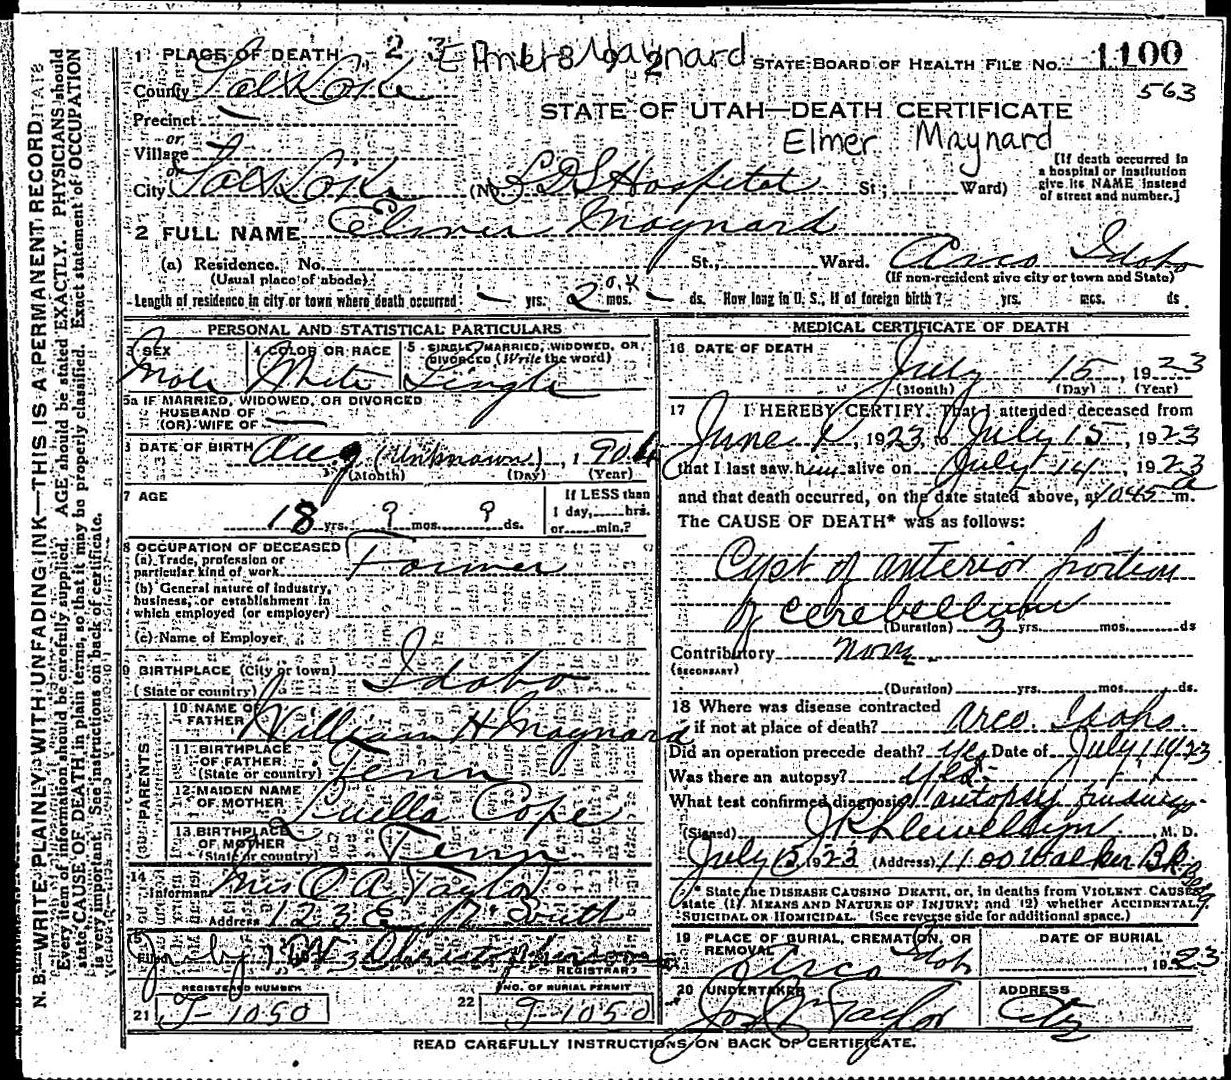 N. B.—WRITE PLAINLY WITH UNFADING INK—THIS IS A PERMANENT RECORD
Every item of information should be carefully supplied. AGE should be stated EXACTLY. PHYSICIANS should
state CAUSE OF DEATH in plain terms, so that it may be properly classified. Exact statement of OCCUPATION
is very important. See instructions on back of certificate.
1 PLACE OF DEATH 23 Elmer Maynard STATE BOARD OF HEALTH FILE NO. 1100
563
County Salt Lake
STATE OF UTAH—DEATH CERTIFICATE
Precinct
Elmer Maynard
or
Village
or
City Salt Lake (No. L.D.S Hospital St; Ward)
[If death occurred in
a hospital or institution
give its NAME instead
of street and number.]
2 FULL NAME Elmer Maynard
(a) Residence. No. St., Ward. Arco Idaho
(Usual place of abode) (If non-resident give city or town and State)
Length of residence in city or town where death occurred — yrs. 2 mos. — ds. How long in U. S., if of foreign birth? yrs. mos. ds.
PERSONAL AND STATISTICAL PARTICULARS
3 SEX 4 COLOR OR RACE 5 SINGLE, MARRIED, WIDOWED, OR
DIVORCED (Write the word)
Male White Single
5a IF MARRIED, WIDOWED, OR DIVORCED
HUSBAND OF
(OR) WIFE OF —
6 DATE OF BIRTH Aug (Unknown), 1904
(Month) (Day) (Year)
7 AGE If LESS than
1 day, hrs.
18 yrs. ? mos. ? ds. or min.?
8 OCCUPATION OF DECEASED
(a) Trade, profession or
particular kind of work Farmer
(b) General nature of industry,
business, or establishment in
which employed (or employer)
(c) Name of Employer
9 BIRTHPLACE (City or town)
(State or country) Idaho
PARENTS
10 NAME OF
FATHER William H Maynard
11 BIRTHPLACE
OF FATHER
(State or country) Tenn
12 MAIDEN NAME
OF MOTHER Luella Cope
13 BIRTHPLACE
OF MOTHER
(State or country) Tenn
14
Informant Mrs O A Taylor
Address 123 E South
15
Filed July
REGISTRAR
REGISTERED NUMBER NO. OF BURIAL PERMIT
21 J-1050 22 J-1050
MEDICAL CERTIFICATE OF DEATH
16 DATE OF DEATH
July 15, 1923
(Month) (Day) (Year)
17 I HEREBY CERTIFY, That I attended deceased from
June 1, 1923, to July 15, 1923
that I last saw him alive on July 14, 1923
and that death occurred, on the date stated above, at 1045 a m.
The CAUSE OF DEATH* was as follows:
Cyst of anterior portion
of cerebellum
(Duration) 3 yrs. mos. ds
Contributory None
(SECONDARY)
(Duration) yrs. mos. ds.
18 Where was disease contracted
if not at place of death? Arco. Idaho.
Did an operation precede death? yes Date of July 1923
Was there an autopsy? yes.
What test confirmed diagnosis? autopsy findings.
(Signed) J P Llewellyn, M. D.
July 15 1923 (Address) 1100 Walker Bk Bldg
* State the DISEASE CAUSING DEATH, or, in deaths from VIOLENT CAUSES
state (1) MEANS AND NATURE OF INJURY; and (2) whether ACCIDENTAL,
SUICIDAL OR HOMICIDAL. (See reverse side for additional space.)
19 PLACE OF BURIAL, CREMATION, OR
REMOVAL DATE OF BURIAL
Arco Idaho , 1923
20 UNDERTAKER ADDRESS
Jos Wm Taylor City
READ CAREFULLY INSTRUCTIONS ON BACK OF CERTIFICATE.